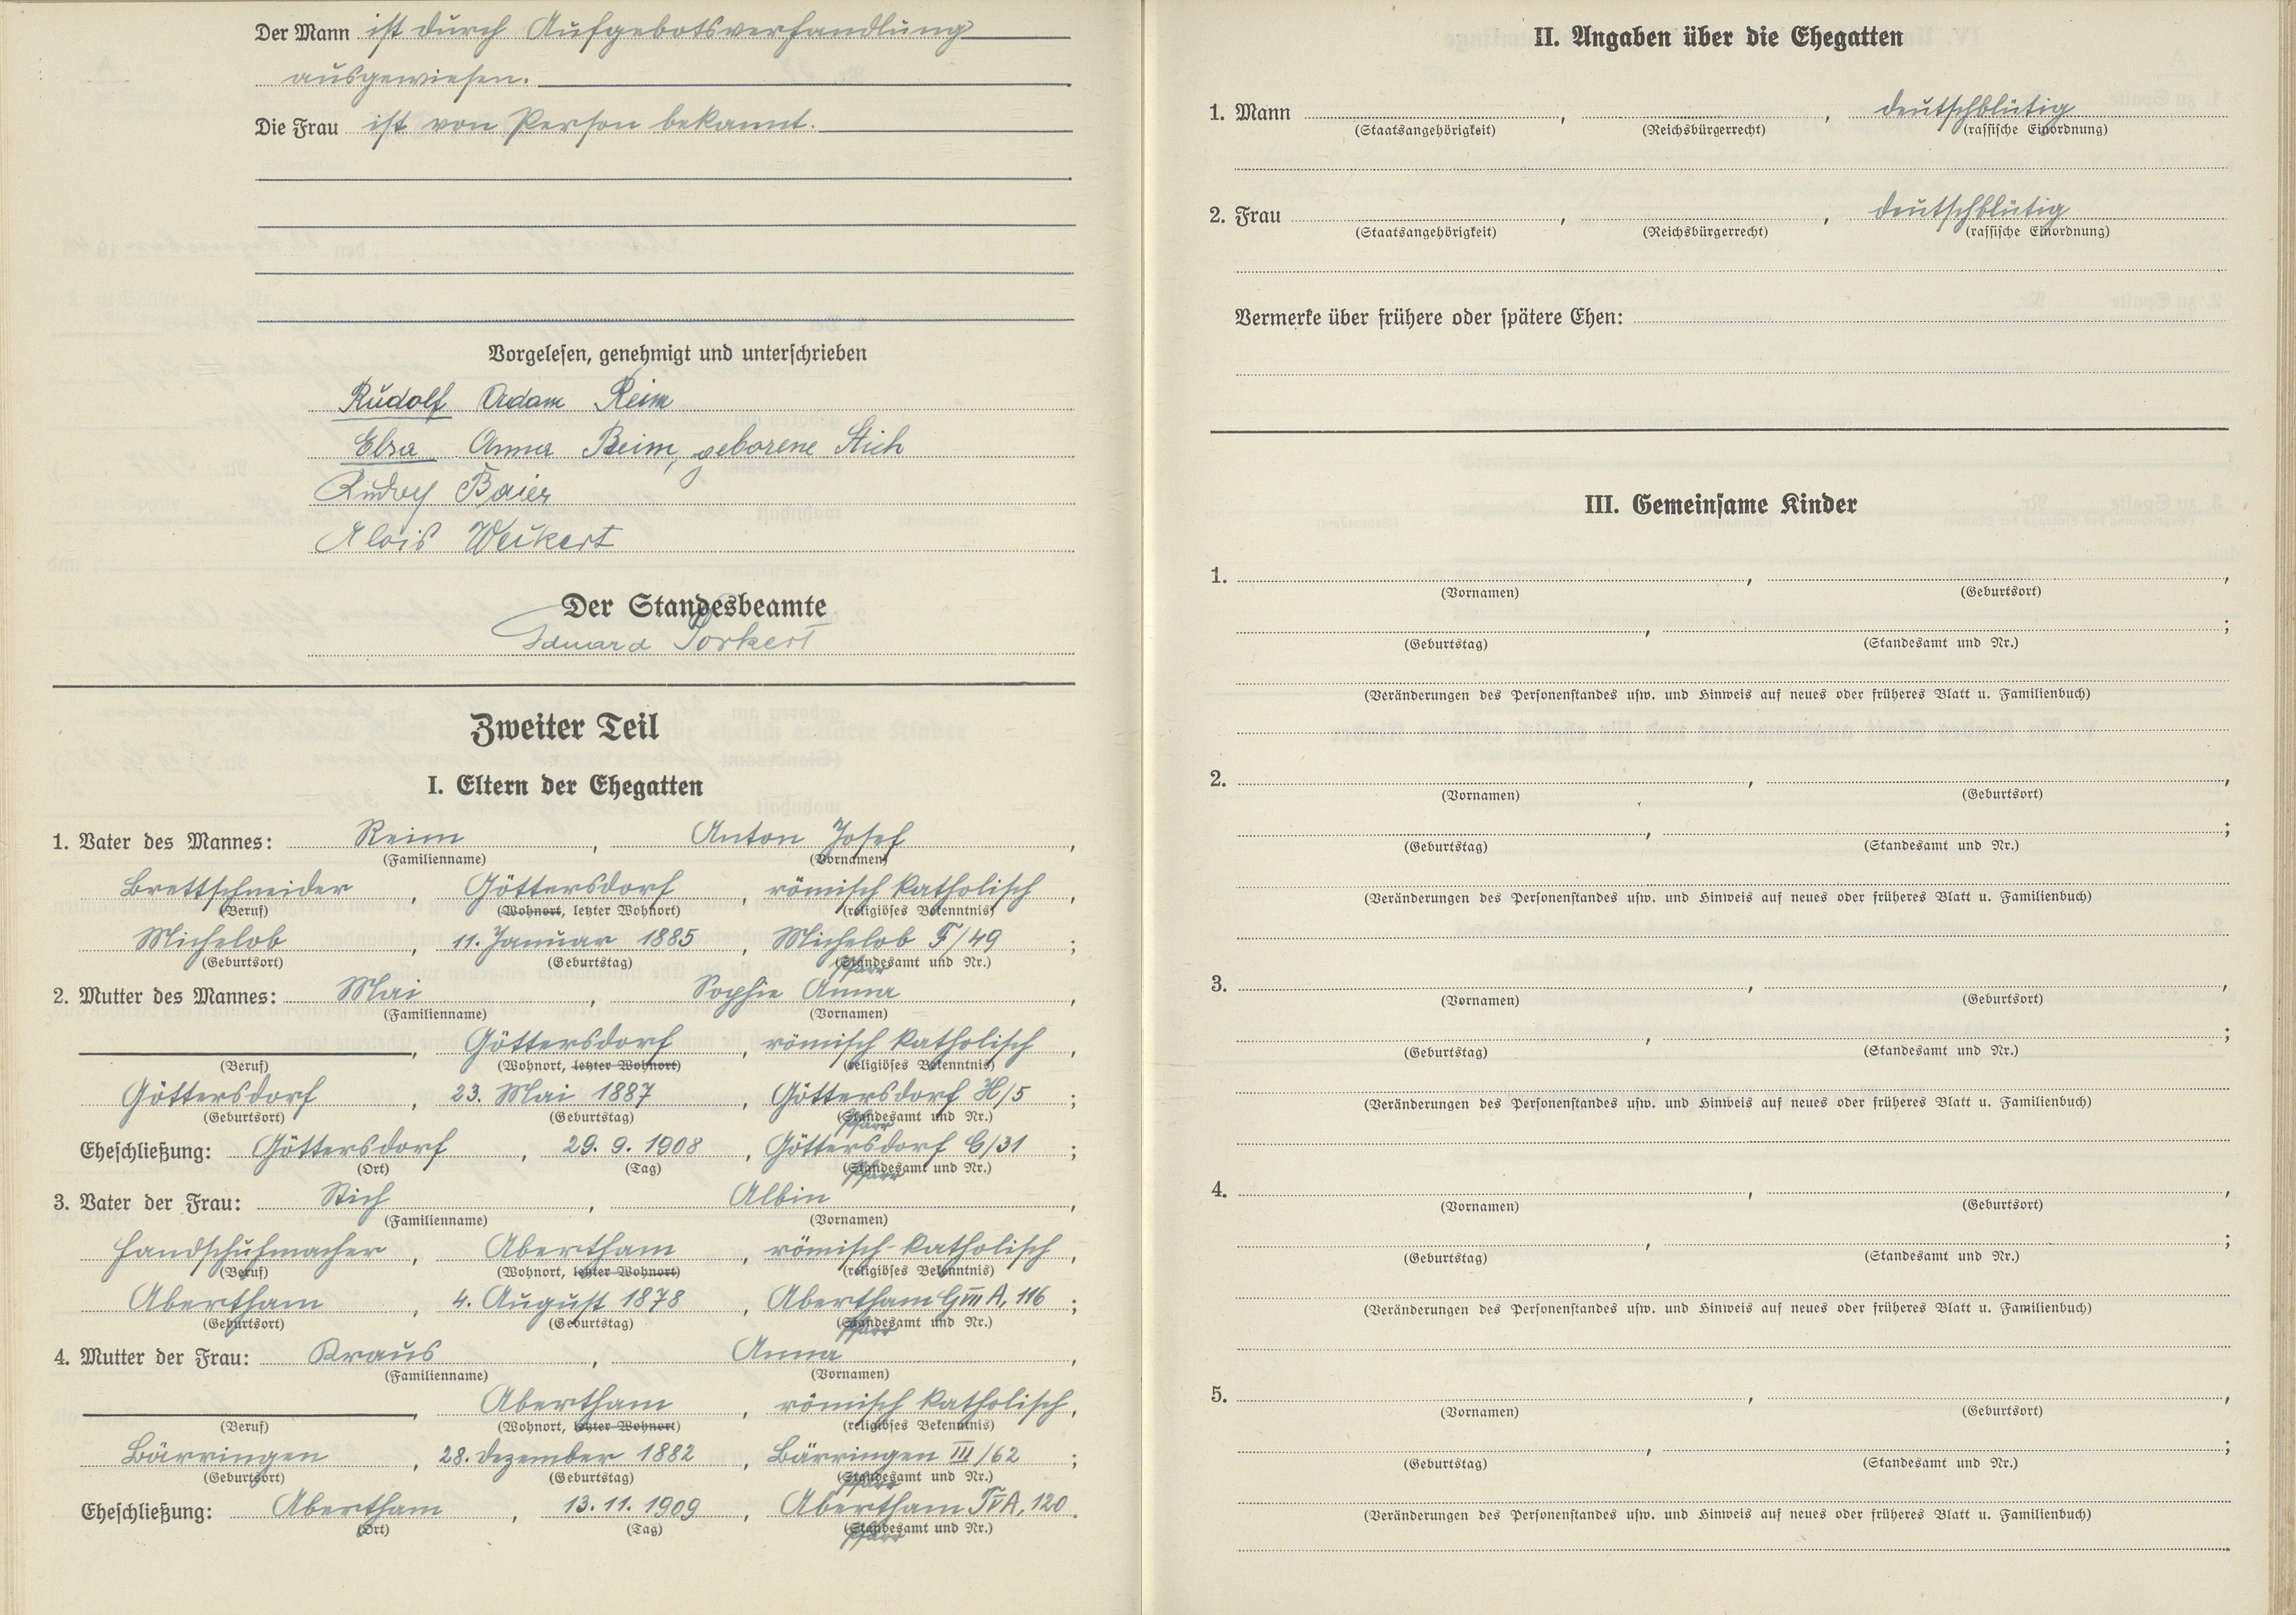 Der Mann ist durch Aufgebotsverhandlung
ausgewiesen.
Die Frau ist von Person bekannt.
Vorgelesen, genehmigt und unterschrieben
Rudolf Adam Reim
Elsa Anna Reim, geborene Stich
Rudolf Baier
Alois Weikert
Der Standesbeamte
Eduard Porkert
Zweiter Teil
I. Eltern der Ehegatten
1. Vater des Mannes: Reim, Anton Josef,
(Familienname) (Vornamen)
Brettschneider, Göttersdorf, römisch katholisch,
(Beruf) (Wohnort, letzter Wohnort) (religiöses Bekenntnis)
Michelob, 11. Januar 1885, Michelob F/49;
(Geburtsort) (Geburtstag) (Standesamt und Nr.)
Pfarr
2. Mutter des Mannes: Mai, Sophie Anna,
(Familienname) (Vornamen)
, Göttersdorf, römisch katholisch,
(Beruf) (Wohnort, letzter Wohnort) (religiöses Bekenntnis)
Göttersdorf, 23. Mai 1887, Göttersdorf H/5;
(Geburtsort) (Geburtstag) (Standesamt und Nr.)
Pfarr
Eheschließung: Göttersdorf, 29. 9. 1908, Göttersdorf G/31;
(Ort) (Tag) (Standesamt und Nr.)
Pfarr
3. Vater der Frau: Stich, Albin,
(Familienname) (Vornamen)
Handschuhmacher, Abertham, römisch-katholisch,
(Beruf) (Wohnort, letzter Wohnort) (religiöses Bekenntnis)
Abertham, 4. August 1878, Abertham G VIII A, 116;
(Geburtsort) (Geburtstag) (Standesamt und Nr.)
Pfarr
4. Mutter der Frau: Kraus, Anna,
(Familienname) (Vornamen)
, Abertham, römisch katholisch,
(Beruf) (Wohnort, letzter Wohnort) (religiöses Bekenntnis)
Bärringen, 28. Dezember 1882, Bärringen III/62;
(Geburtsort) (Geburtstag) (Standesamt und Nr.)
Pfarr
Eheschließung: Abertham, 13. 11. 1909, Abertham T V A, 120.
(Ort) (Tag) (Standesamt und Nr.)
Pfarr
II. Angaben über die Ehegatten
1. Mann , , deutschblütig
(Staatsangehörigkeit) (Reichsbürgerrecht) (rassische Einordnung)
2. Frau , , deutschblütig
(Staatsangehörigkeit) (Reichsbürgerrecht) (rassische Einordnung)
Vermerke über frühere oder spätere Ehen:
III. Gemeinsame Kinder
1. , ,
(Vornamen) (Geburtsort)
, ;
(Geburtstag) (Standesamt und Nr.)
(Veränderungen des Personenstandes usw. und Hinweis auf neues oder früheres Blatt u. Familienbuch)
2. , ,
(Vornamen) (Geburtsort)
, ;
(Geburtstag) (Standesamt und Nr.)
(Veränderungen des Personenstandes usw. und Hinweis auf neues oder früheres Blatt u. Familienbuch)
3. , ,
(Vornamen) (Geburtsort)
, ;
(Geburtstag) (Standesamt und Nr.)
(Veränderungen des Personenstandes usw. und Hinweis auf neues oder früheres Blatt u. Familienbuch)
4. , ,
(Vornamen) (Geburtsort)
, ;
(Geburtstag) (Standesamt und Nr.)
(Veränderungen des Personenstandes usw. und Hinweis auf neues oder früheres Blatt u. Familienbuch)
5. , ,
(Vornamen) (Geburtsort)
, ;
(Geburtstag) (Standesamt und Nr.)
(Veränderungen des Personenstandes usw. und Hinweis auf neues oder früheres Blatt u. Familienbuch)